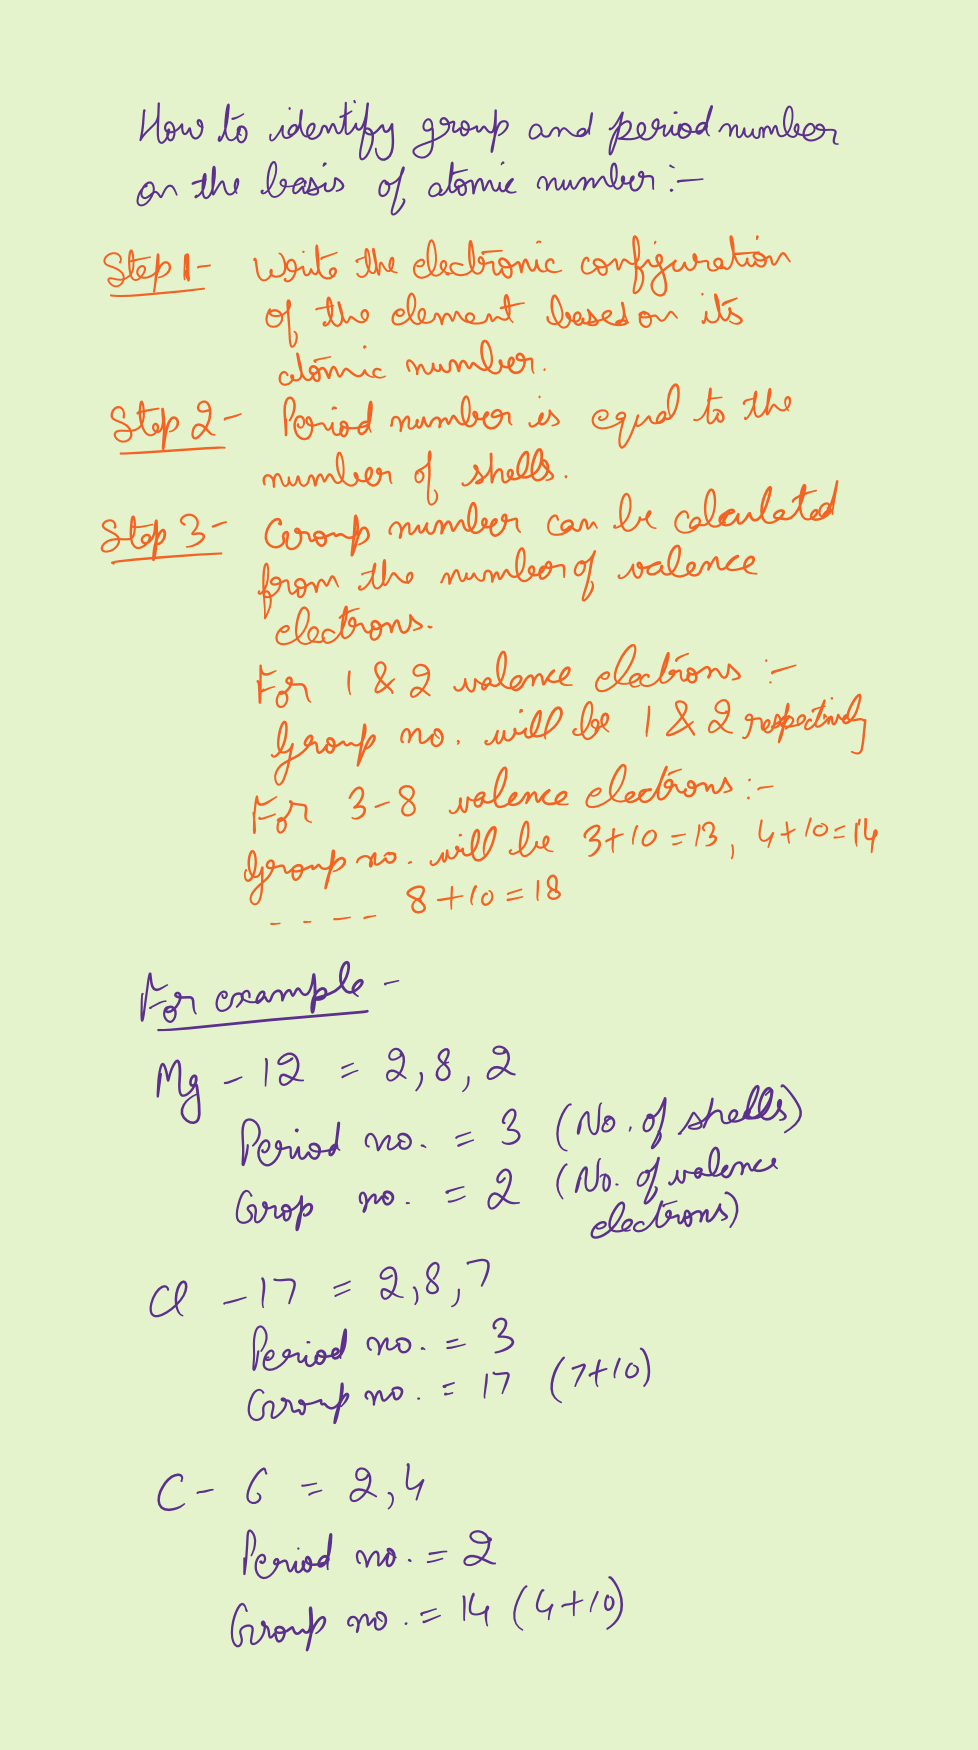 How to identify group and period number
on the basis of atomic number :-
Step 1- Write the electronic configuration
of the element based on its
atomic number.
Step 2- Period number is equal to the
number of shells.
Step 3- Group number can be calculated
from the number of valence
electrons.
For 1 & 2 valence electrons :-
group no. will be 1 & 2 respectively
For 3-8 valence electrons :-
group no. will be 3+10=13, 4+10=14
- - - - - 8+10=18
For example -
Mg - 12 = 2,8,2
Period no. = 3 (No. of shells)
Grop no. = 2 (No. of valence
electrons)
Cl - 17 = 2,8,7
Period no. = 3
Group no. = 17 (7+10)
C - 6 = 2,4
Period no. = 2
Group no. = 14 (4+10)